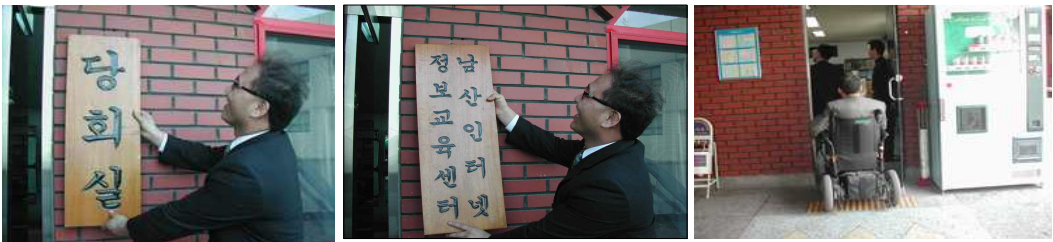 당회실
남산인터넷
정보교육센터